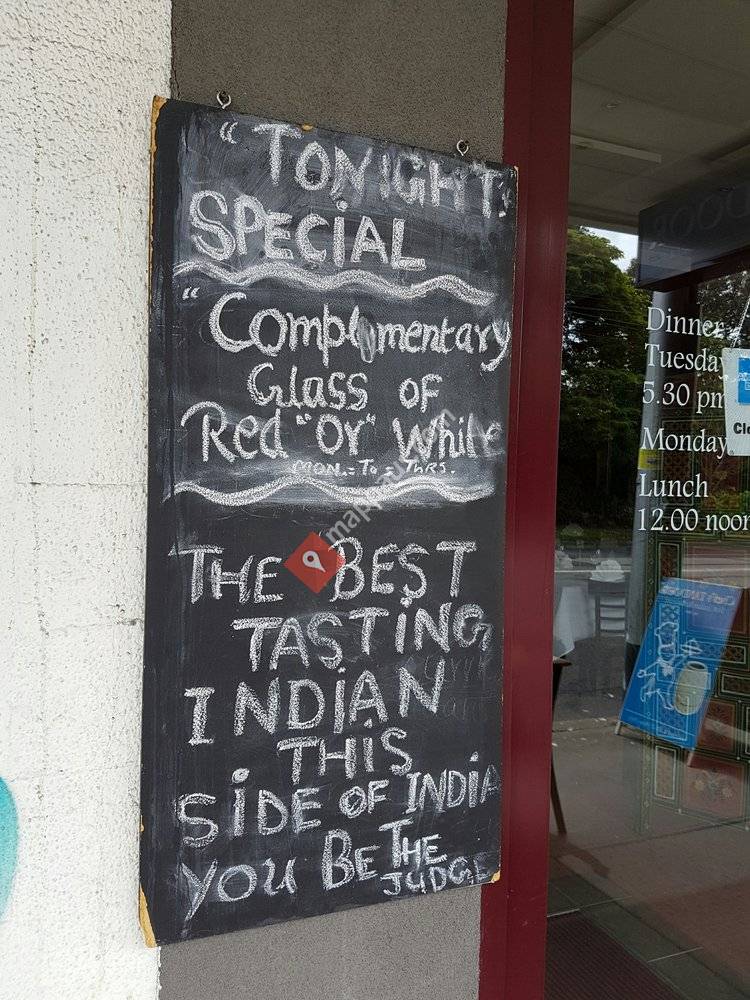 "TONIGHTS
SPECIAL
"Complimentary
Glass of
Red "or" White
MON.=To=THRS.
THE BEST
TASTING
INDIAN
THIS
SIDE OF INDIA
YOU BE THE
JUDGE
Dinner
Tuesday
5.30 pm
Monday
Lunch
12.00 noon
Clo